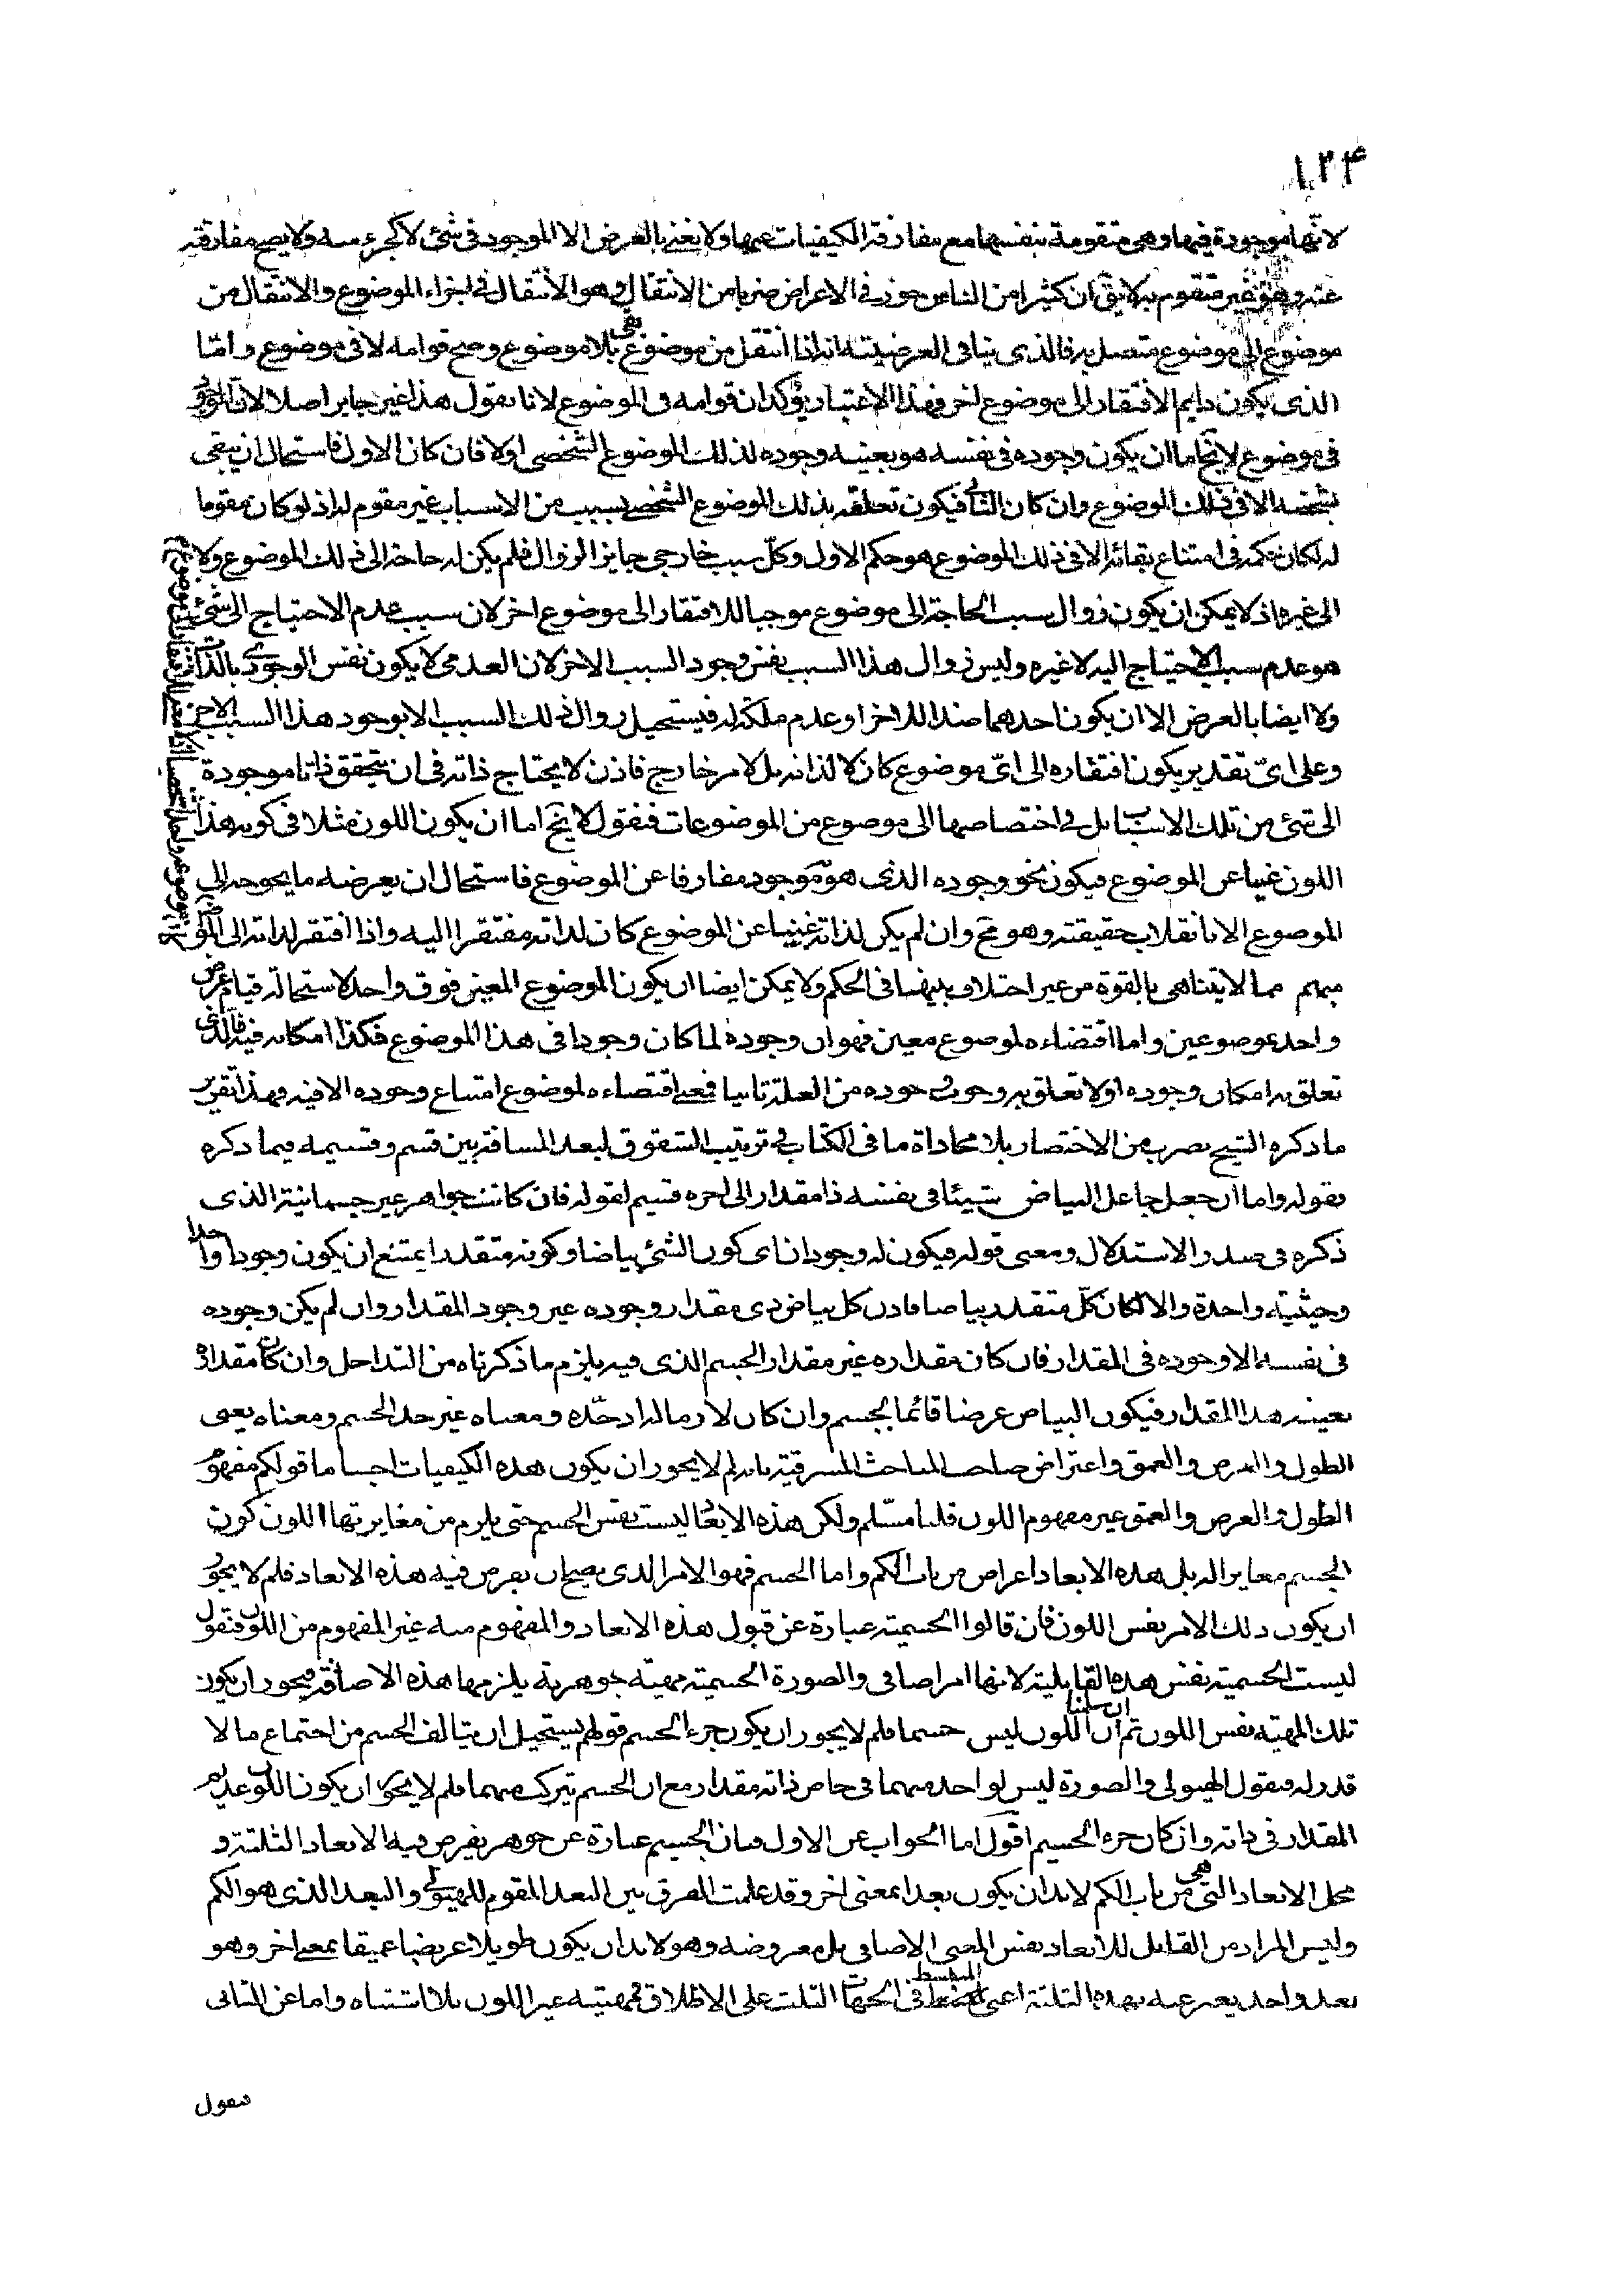 ١٣۴
لانها موجودة فيها وهى متقومة بنفسها مع مفارقة الكيفيات عنها ولا يعنى بالعرض الا الموجود فى شئ لا كجزء منه ولا يصح مفارقته
عنه وهو غير متقوم به لايق ان كثيرا من الناس جوز فى الاعراض ضربا من الانتقال وهو الانتقال فى اجزاء الموضوع والانتقال من
موضوع الى موضوع متصل به فالذى ينافى العرضية انه اذا انتقل من موضوع بقى بلا موضوع وصح قوامه لا فى موضوع واما
الذى يكون دايم الافتقار الى موضوع اخر فهذا الاعتبار يؤكد ان قوامه فى الموضوع لانا نقول هذا غير جايز اصلا لان الموجود
فى موضوع لايخ اما ان يكون وجوده فى نفسه هو بعينه وجوده لذلك الموضوع الشخصى اولا فان كان الاول فاستحال ان يبقى
بشخصه الا فى ذلك الموضوع وان كان الثانى فيكون تعلقه بذلك الموضوع الشخصى بسبب من الاسباب غير مقوم له اذ لو كان مقوما
له لكان حكمه فى امتناع بقائه الا فى ذلك الموضوع هو حكم الاول وكل سبب خارجى جايز الزوال فلم يكن له حاجة الى ذلك الموضوع ولا
الى غيره اذ لا يمكن ان يكون زوال سبب الحاجة الى موضوع موجبا للافتقار الى موضوع اخر لان سبب عدم الاحتياج الى شئ
هو عدم سبب الاحتياج اليه لا غيره وليس زوال هذا السبب نفس وجود السبب الاخر لان العدمى لا يكون نفس الوجودى بالذات
ولا ايضا بالعرض الا ان يكون احدهما ضدا للاخر او عدم ملكة له فيستحيل زوال ذلك السبب الا بوجود هذا السبب الاخر
وعلى اى تقدير يكون افتقاره الى اى موضوع كان لا لذاته بل لامر خارج فاذن لا يحتاج ذاته فى ان يتحقق ذاتا موجودة
الى شئ من تلك الاسباب بل فى اختصاصها الى موضوع من الموضوعات فنقول لايخ اما ان يكون اللون مثلا فى كونه هذا
اللون غنيا عن الموضوع فيكون نحو وجوده الذى هو به موجود مفارقا عن الموضوع فاستحال ان يعرضه ما يحوجه الى
الموضوع الا بانقلاب حقيقته وهو مح وان لم يكن لذاته غنيا عن الموضوع كان لذاته مفتقرا اليه واذا افتقر لذاته الى
مبهم مما لا يتناهى بالقوة من غير اختلاف بينها فى الحكم ولا يمكن ايضا ان يكون الموضوع المعين فوق واحد لاستحالة قيام عرض
واحد بموضوعين واما اقتضاءه لموضوع معين فهو ان وجوده لما كان وجودا فى هذا الموضوع فكذا امكانه فيه فالذى
تعلق به امكان وجوده اولا تعلق به وجوب وجوده من العلة ثانيا فمعنى اقتضاءه لموضوع امتناع وجوده الا فيه وهذا تقرير
ما ذكره الشيخ بضرب من الاختصار بلا محاذاة ما فى الكتاب فى ترتيب الشقوق لبعد المسافة بين قسم وقسيمه فيما ذكره
بقوله واما ان جعل جاعل البياض شيئا فى نفسه ذا مقدار الى اخره قسيم لقوله فان كانت جواهر غير جسمانية الذى
ذكره فى صدر الاستدلال ومعنى قوله فيكون له وجودان اى كون الشئ بياضا وكونه متقدرا يمتنع ان يكون وجودا واحدا
وحيثية واحدة والا لكان كل متقدر بياضا فاذن كل بياض ذى مقدار وجوده غير وجود المقدار وان لم يكن وجوده
فى نفسه الا وجوده فى المقدار فان كان مقداره غير مقدار الجسم الذى فيه يلزم ما ذكرناه من التداخل وان كان مقداره
بعينه هذا المقدار فيكون البياض عرضا قائما بالجسم وان كان لازما له اذ حده ومعناه غير حد الجسم ومعناه يعنى
الطول والعرض والعمق واعتراض صاحب المباحث المشرقية بانه لم لا يجوز ان يكون هذه الكيفيات اجساما قولكم مفهوم
الطول والعرض والعمق غير مفهوم اللون قلنا مسلم ولكن هذه الابعاد ليست نفس الجسم حتى يلزم من مغايرتها اللون كون
الجسم مغايرا له بل هذه الابعاد اعراض من باب الكم واما الجسم فهو الامر الذى يصح ان يعرض فيه هذه الابعاد فلم لا يجوز
ان يكون ذلك الامر نفس اللون فان قالوا الجسمية عبارة عن قبول هذه الابعاد والمفهوم منه غير المفهوم من اللون فنقول
ليست الجسمية نفس هذه القابلية لانها امر اضافى والصورة الجسمية مهية جوهرية يلزمها هذه الاضافة فيجوز ان يكون
تلك المهية نفس اللون ثم ان سلمنا ان اللون ليس جسما فلم لا يجوز ان يكون جزء الجسم قولهم يستحيل ان يتالف الجسم من اجتماع ما لا
قدر له فنقول الهيولى والصورة ليس لواحد منهما فى خاص ذاته مقدار مع ان الجسم تيركب منهما فلم لا يجوز ان يكون اللون عديم
المقدار فى ذاته وان كان جزء الجسم اقول اما الجواب عن الاول فبان الجسم عبارة عن جوهر يفرض فيه الابعاد الثلثة و
محل الابعاد التى هى من باب الكم لا بد ان يكون بعدا بمعنى اخر وقد علمت الفرق بين البعد المقوم للهيولى والبعد الذى هو الكم
وليس المراد من القابل للابعاد نفس المعنى الاضافى بل معروضه وهو لا بد ان يكون طويلا عريضا عميقا بمعنى اخر وهو
بعد واحد يعبر عنه بهذه الثلثة اعنى المنبسط فى الجهات الثلث على الاطلاق فمهيته غير اللون بلا اشتباه واما عن الثانى
فنقول